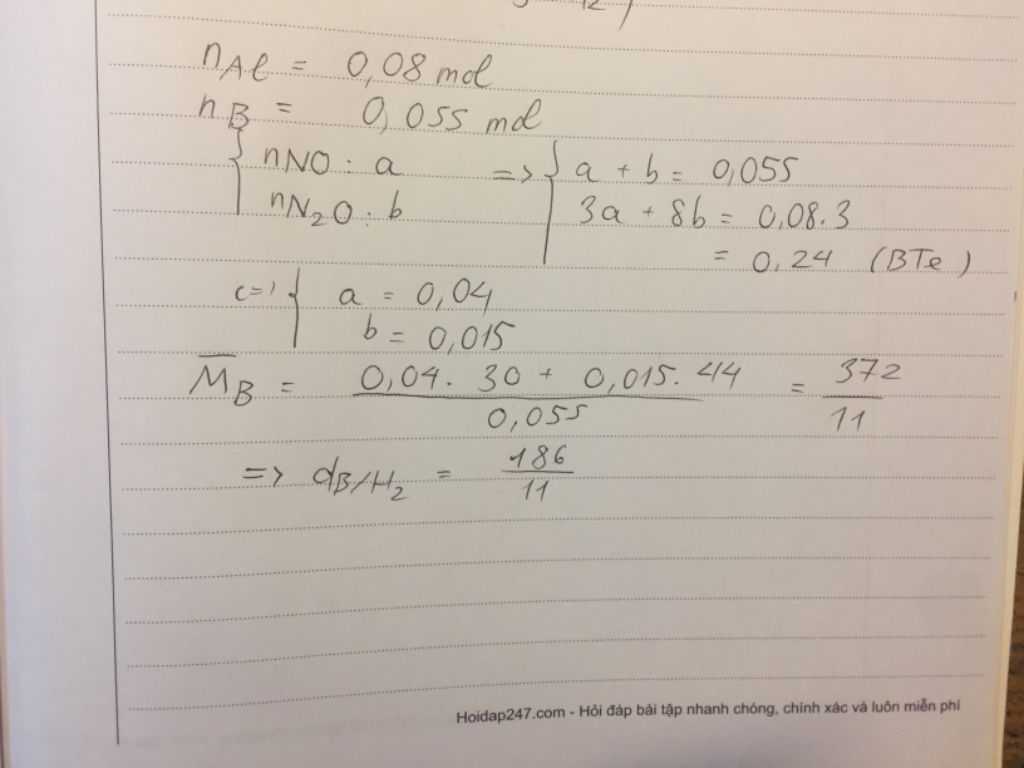 nAl = 0,08 mol
nB = 0,055 mol
{ nNO : a => { a + b = 0,055
nN2O : b 3a + 8b = 0,08.3
= 0,24 (BTe)
<=> { a = 0,04
b = 0,015
M̅B = (0,04. 30 + 0,015. 44) / 0,055 = 372 / 11
=> dB/H2 = 186 / 11
Hoidap247.com - Hỏi đáp bài tập nhanh chóng, chính xác và luôn miễn phí